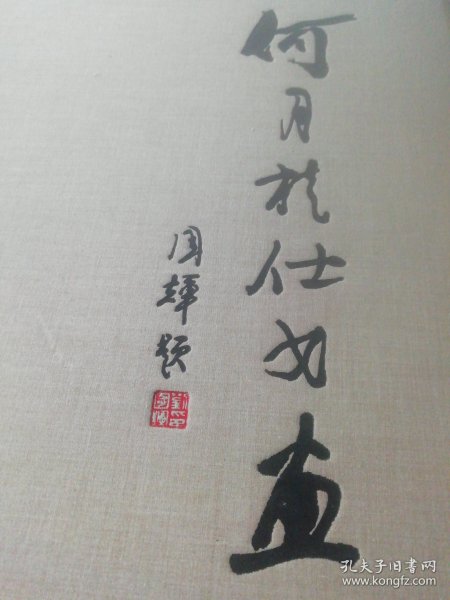 何月桂仕女画
国輝题
孔夫子旧书网
www.kongfz.com